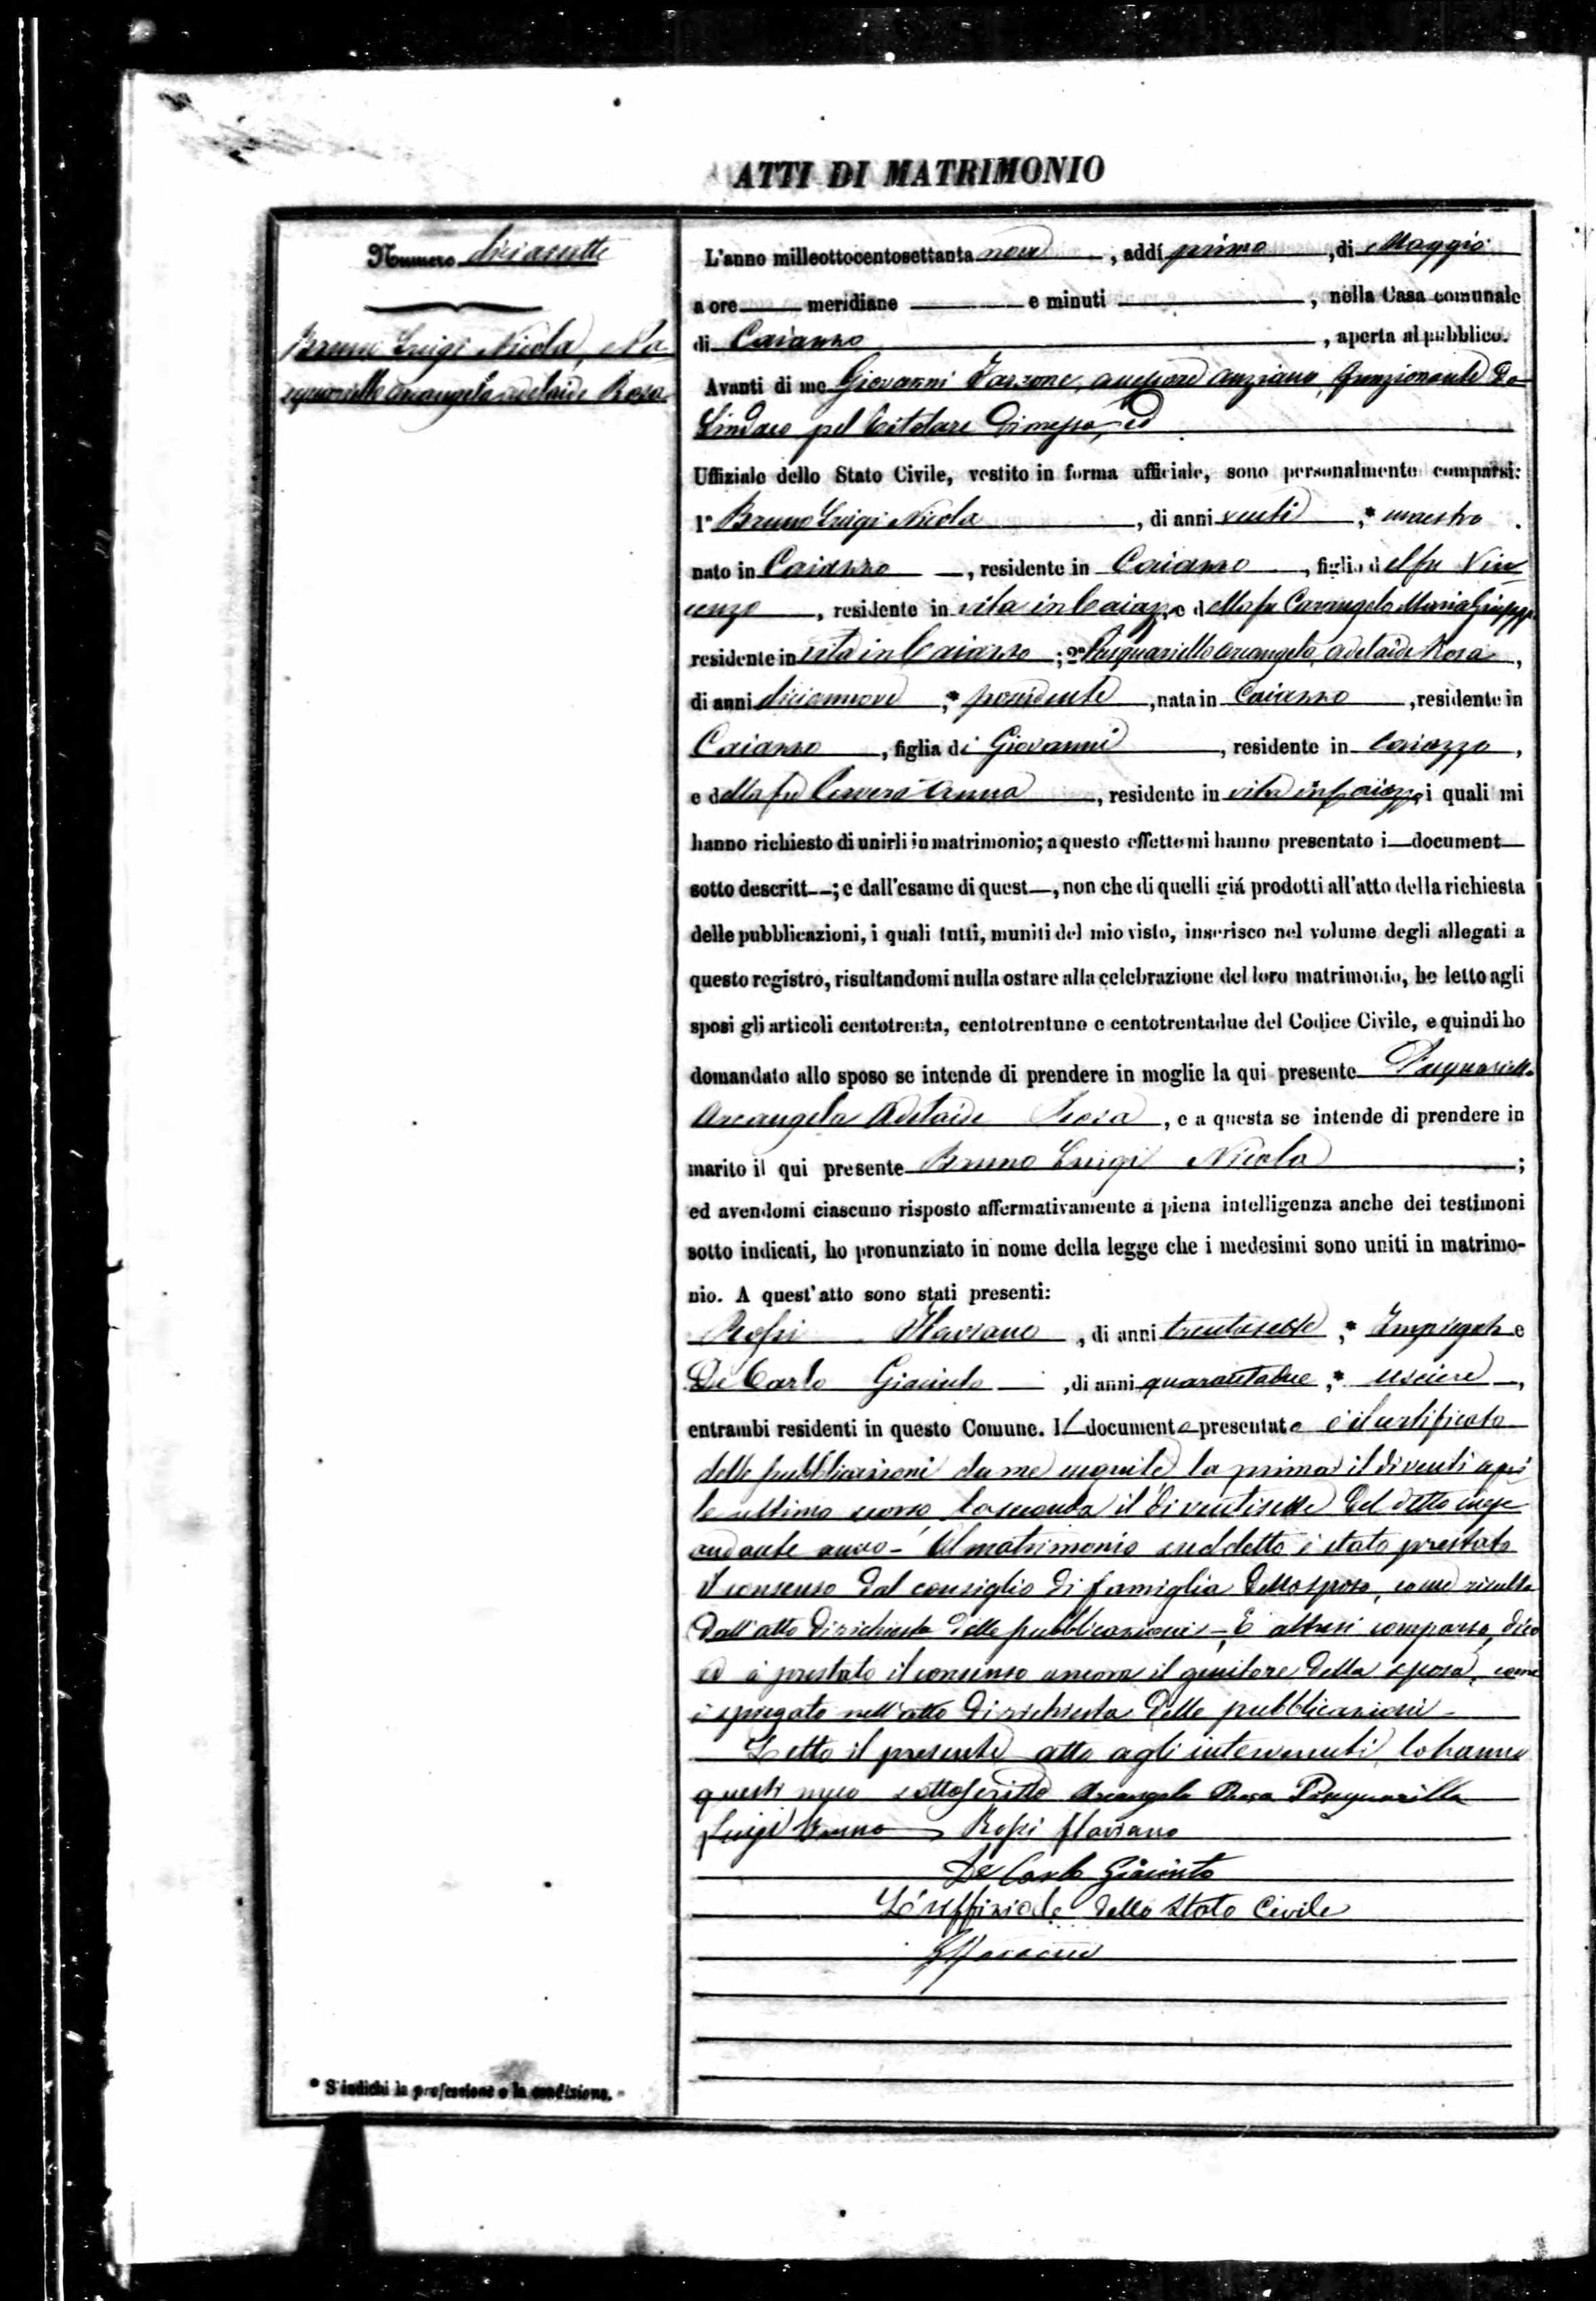 ATTI DI MATRIMONIO
Numero diciasette
Bruno Luigi Nicola, Pa
squariello Arcangela Adelaide Rosa
L'anno milleottocentosettanta nove, addí primo, di Maggio
a ore meridiane e minuti, nella Casa comunale
di Caiazzo, aperta al pubblico.
Avanti di me Giovanni assessore anziano funzionante da
Sindaco pel titolare dimesso, ed
Uffiziale dello Stato Civile, vestito in forma ufficiale, sono personalmente comparsi:
1º Bruno Luigi Nicola, di anni venti, * maestro.
nato in Caiazzo, residente in Caiazzo, figlio del fu Vin
cenzo, residente in vita in Caiazzo, e della fu Carangelo Maria Giuseppa
residente in vita in Caiazzo; 2º Pasquariello Arcangela Adelaide Rosa,
di anni diciannove, * possidente, nata in Caiazzo, residente in
Caiazzo, figlia di Giovanni, residente in Caiazzo,
e della fu Anna, residente in vita in Caiazzo, i quali mi
hanno richiesto di unirli in matrimonio; a questo effetto mi hanno presentato i document
sotto descritt; e dall'esame di quest, non che di quelli giá prodotti all'atto della richiesta
delle pubblicazioni, i quali tutti, muniti del mio visto, inserisco nel volume degli allegati a
questo registro, risultandomi nulla ostare alla celebrazione del loro matrimonio, ho letto agli
sposi gli articoli centotrenta, centotrentuno e centotrentadue del Codice Civile, e quindi ho
domandato allo sposo se intende di prendere in moglie la qui presente Pasquariello
Arcangela Adelaide Rosa, e a questa se intende di prendere in
marito il qui presente Bruno Luigi Nicola;
ed avendomi ciascuno risposto affermativamente a piena intelligenza anche dei testimoni
sotto indicati, ho pronunziato in nome della legge che i medesimi sono uniti in matrimo-
nio. A quest'atto sono stati presenti:
Rossi Flaviano, di anni trentasette, * Impiegato e
De Carlo Giacinto, di anni quarantadue, * usciere,
entrambi residenti in questo Comune. Il documento presentato è il certificato
delle pubblicazioni da me eseguite la prima il dì venti apri
le ultimo scorso, la seconda il dì ventisette del detto mese
andante anno - Al matrimonio suddetto è stato prestato
il consenso dal consiglio di famiglia dello sposo, come risulta
dall'atto di richiesta delle pubblicazioni - È altresì comparso, dico
ed à prestato il consenso ancora il genitore della sposa, come
è spiegato nell'atto di richiesta delle pubblicazioni -
Letto il presente atto agli intervenuti, lo hanno
questi meco sottoscritto Arcangela Rosa Pasquariello
Luigi Bruno Rossi Flaviano
De Carlo Giacinto
L'uffiziale dello Stato Civile
* S'indichi la professione o la condizione.